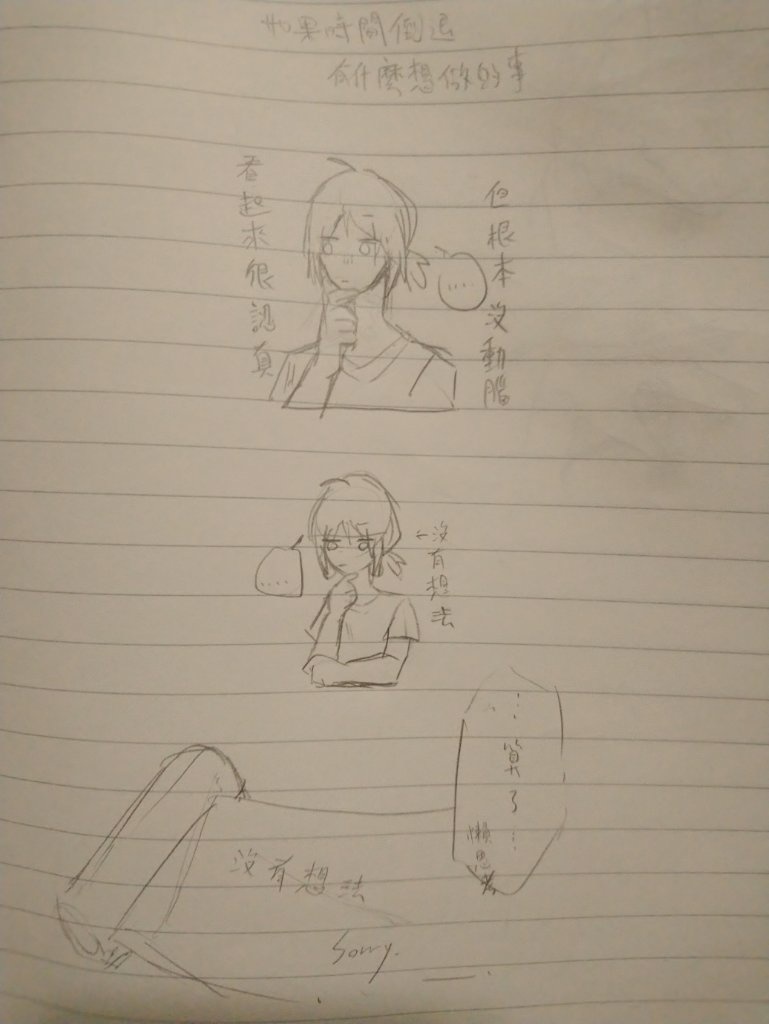 如果時間倒退
有什麼想做的事
看起來很認真
但根本沒動腦
....
←沒有想法
....
...算了...
懶思考
沒有想法
Sorry.